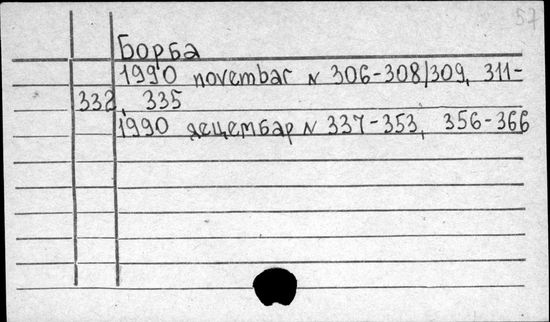 57
Борба
1990 novembar N 306-308/309, 311-
332, 335
1990 децембар N 337-353, 356-366